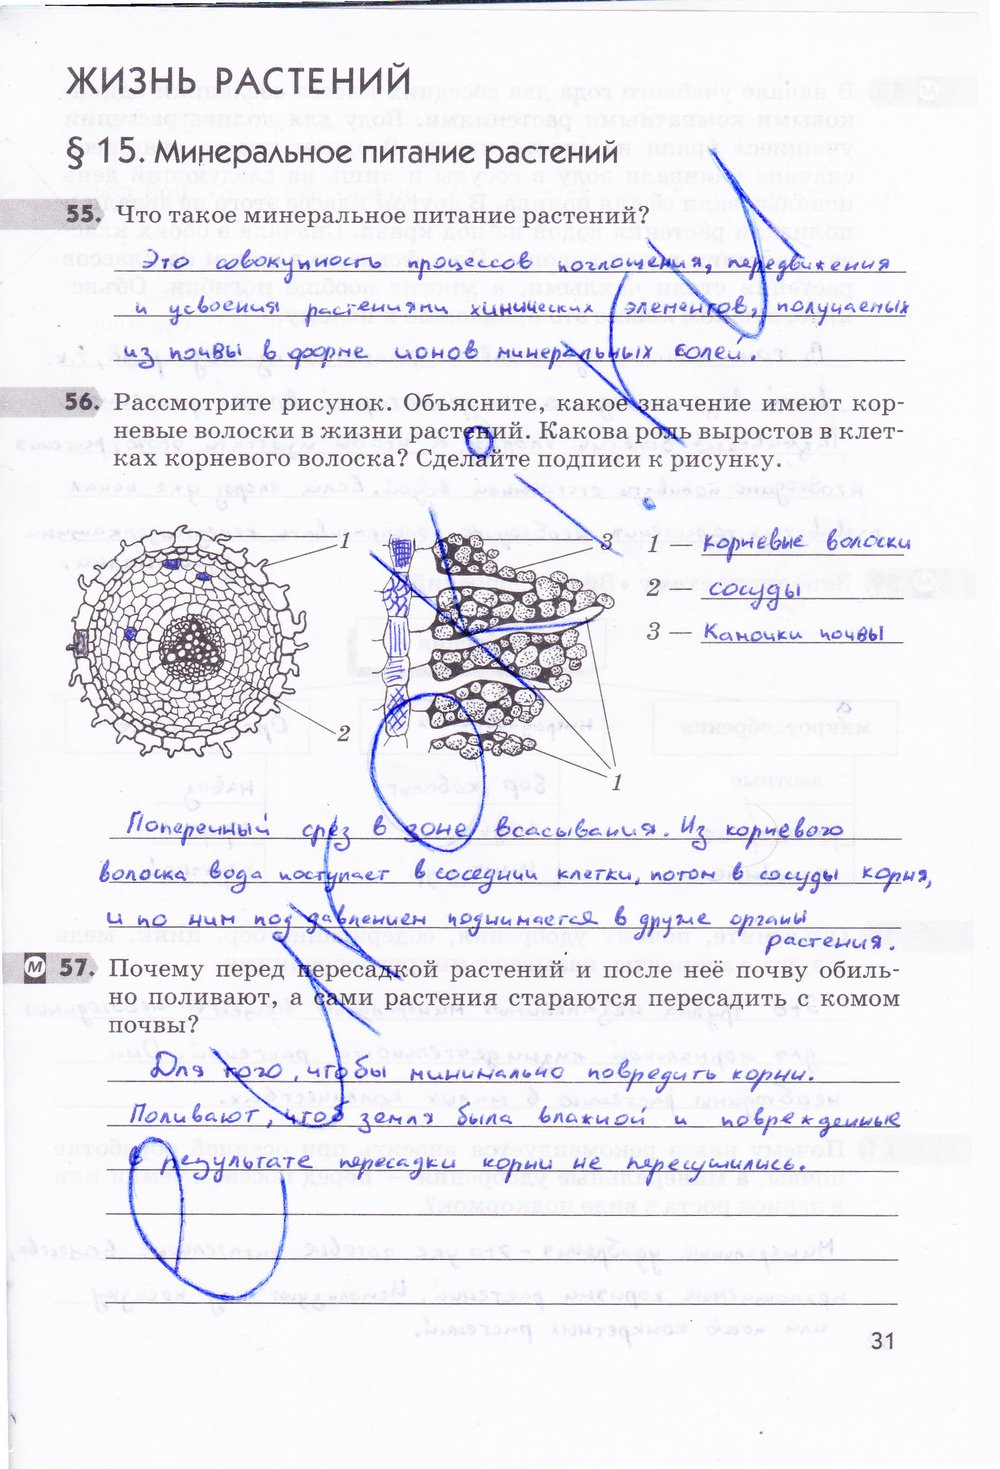 ЖИЗНЬ РАСТЕНИЙ
§ 15. Минеральное питание растений
55. Что такое минеральное питание растений?
Это совокупность процессов поглощения, передвижения
и усвоения растениями химических элементов, получаемых
из почвы в форме ионов минеральных солей.
56. Рассмотрите рисунок. Объясните, какое значение имеют кор-
невые волоски в жизни растений. Какова роль выростов в клет-
ках корневого волоска? Сделайте подписи к рисунку.
1
3
1 — корневые волоски
2 — сосуды
3 — Камочки почвы
2
1
Поперечный срез в зоне всасывания. Из корневого
волоска вода поступает в соседнии клетки, потом в сосуды корня,
и по ним под давлением поднимается в другие органы
растения.
М 57. Почему перед пересадкой растений и после неё почву обиль-
но поливают, а сами растения стараются пересадить с комом
почвы?
Для того, чтобы минимально повредить корни.
Поливают, чтоб земля была влажной и поврежденные
в результате пересадки корни не пересушились.
31